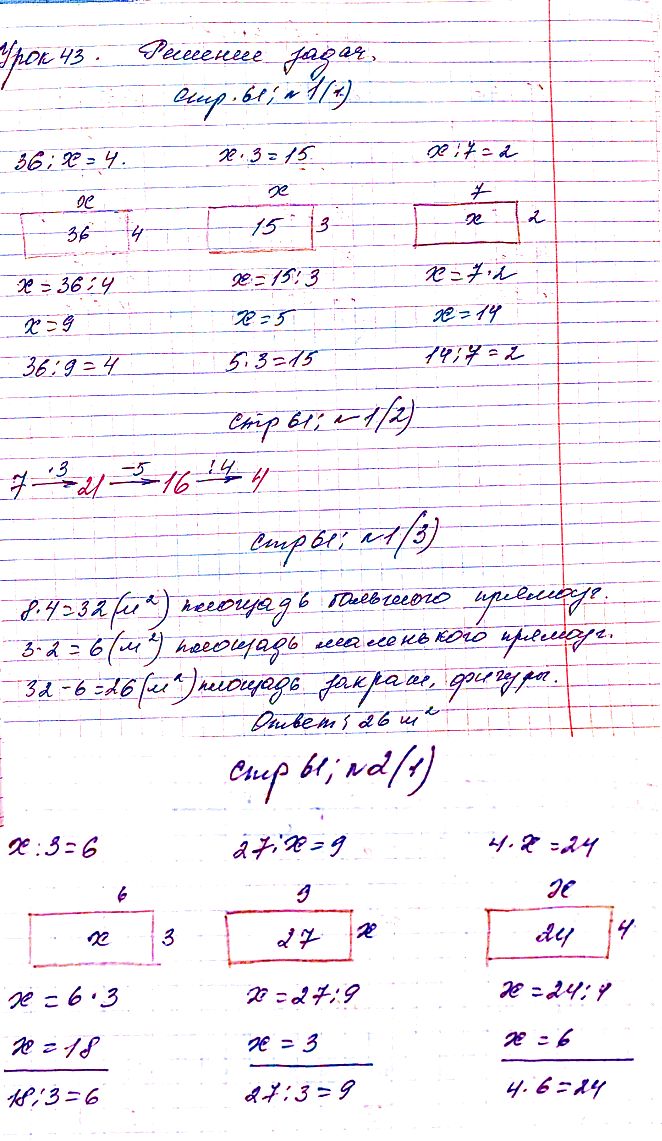 Урок 43. Решение задач.
стр. 61; №1(1)
36 : x = 4. x · 3 = 15 x : 7 = 2
x x 7
36 4 15 3 x 2
x = 36 : 4 x = 15 : 3 x = 7 · 2
x = 9 x = 5 x = 14
36 : 9 = 4 5 · 3 = 15 14 : 7 = 2
стр 61; №1(2)
·3 -5 :4
7 → 21 → 16 → 4
стр 61; №1(3)
8 · 4 = 32 (м²) площадь большого прямоуг.
3 · 2 = 6 (м²) площадь маленького прямоуг.
32 - 6 = 26 (м²) площадь закраш. фигуры.
Ответ; 26 м²
стр 61; №2(1)
x : 3 = 6 27 : x = 9 4 · x = 24
6 9 x
x 3 27 x 24 4
x = 6 · 3 x = 27 : 9 x = 24 : 4
x = 18 x = 3 x = 6
18 : 3 = 6 27 : 3 = 9 4 · 6 = 24